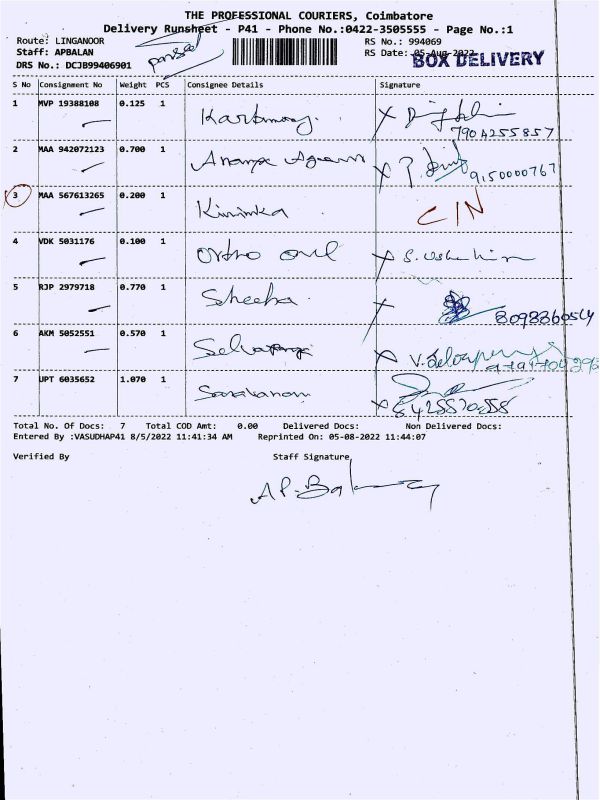 THE PROFESSIONAL COURIERS, Coimbatore
Delivery Runsheet - P41 - Phone No.:0422-3505555 - Page No.:1
Route: LINGANOOR RS No.: 994069
Staff: APBALAN RS Date: 05-Aug-2022
DRS No.: DCJB99406901 BOX DELIVERY
S No Consignment No Weight PCS Consignee Details Signature
1 MVP 19388108 0.125 1
7904255857
2 MAA 942072123 0.700 1 Ananya
9150000767
3 MAA 567613265 0.200 1 C/N
4 VDK 5031176 0.100 1 Ortho one
5 RJP 2979718 0.770 1 Sheeba
6 AKM 5052551 0.570 1
7 UPT 6035652 1.070 1 Saravanan
Total No. Of Docs: 7 Total COD Amt: 0.00 Delivered Docs: Non Delivered Docs:
Entered By :VASUDHAP41 8/5/2022 11:41:34 AM Reprinted On: 05-08-2022 11:44:07
Verified By Staff Signature